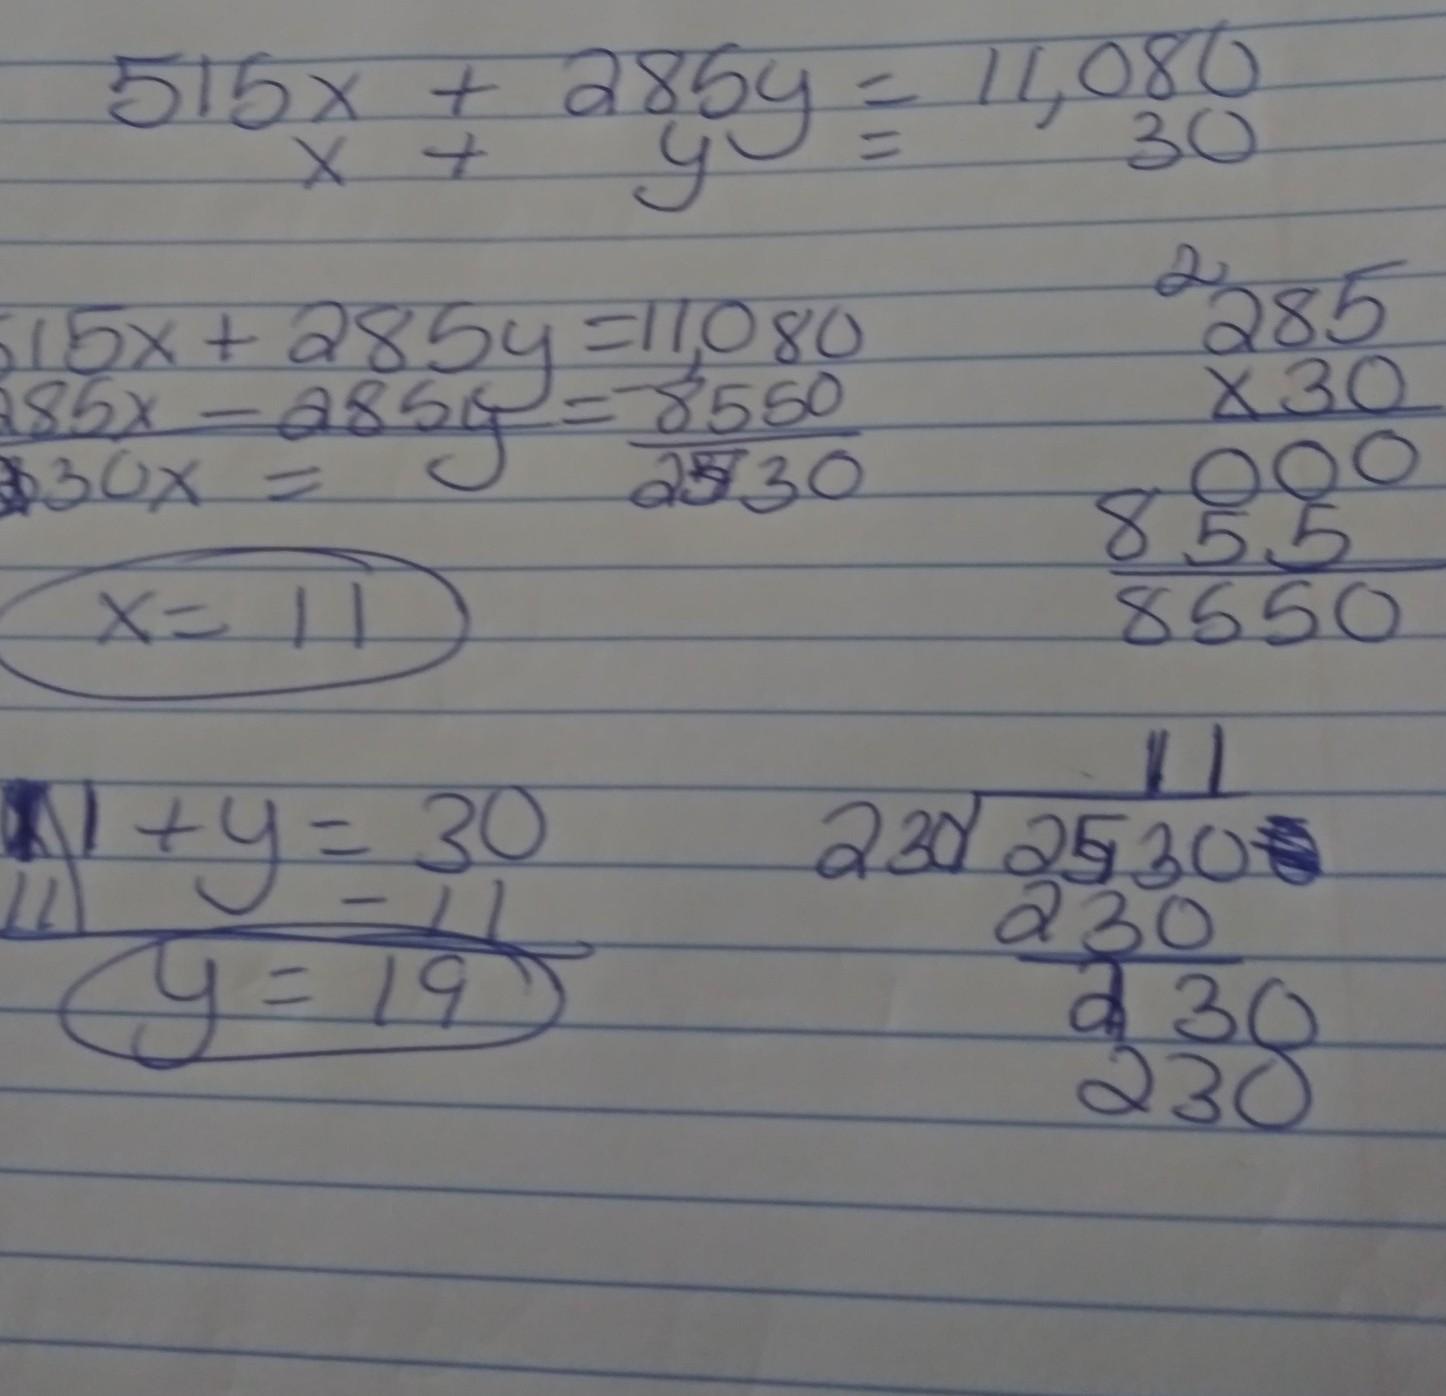 515x + 285y = 11,080
x + y = 30
515x + 285y = 11,080
285x - 285y = -8550
230x = 2530
x = 11
2
285
x30
000
855
8550
11 + y = 30
11 - 11
y = 19
11
230 2530
230
230
230